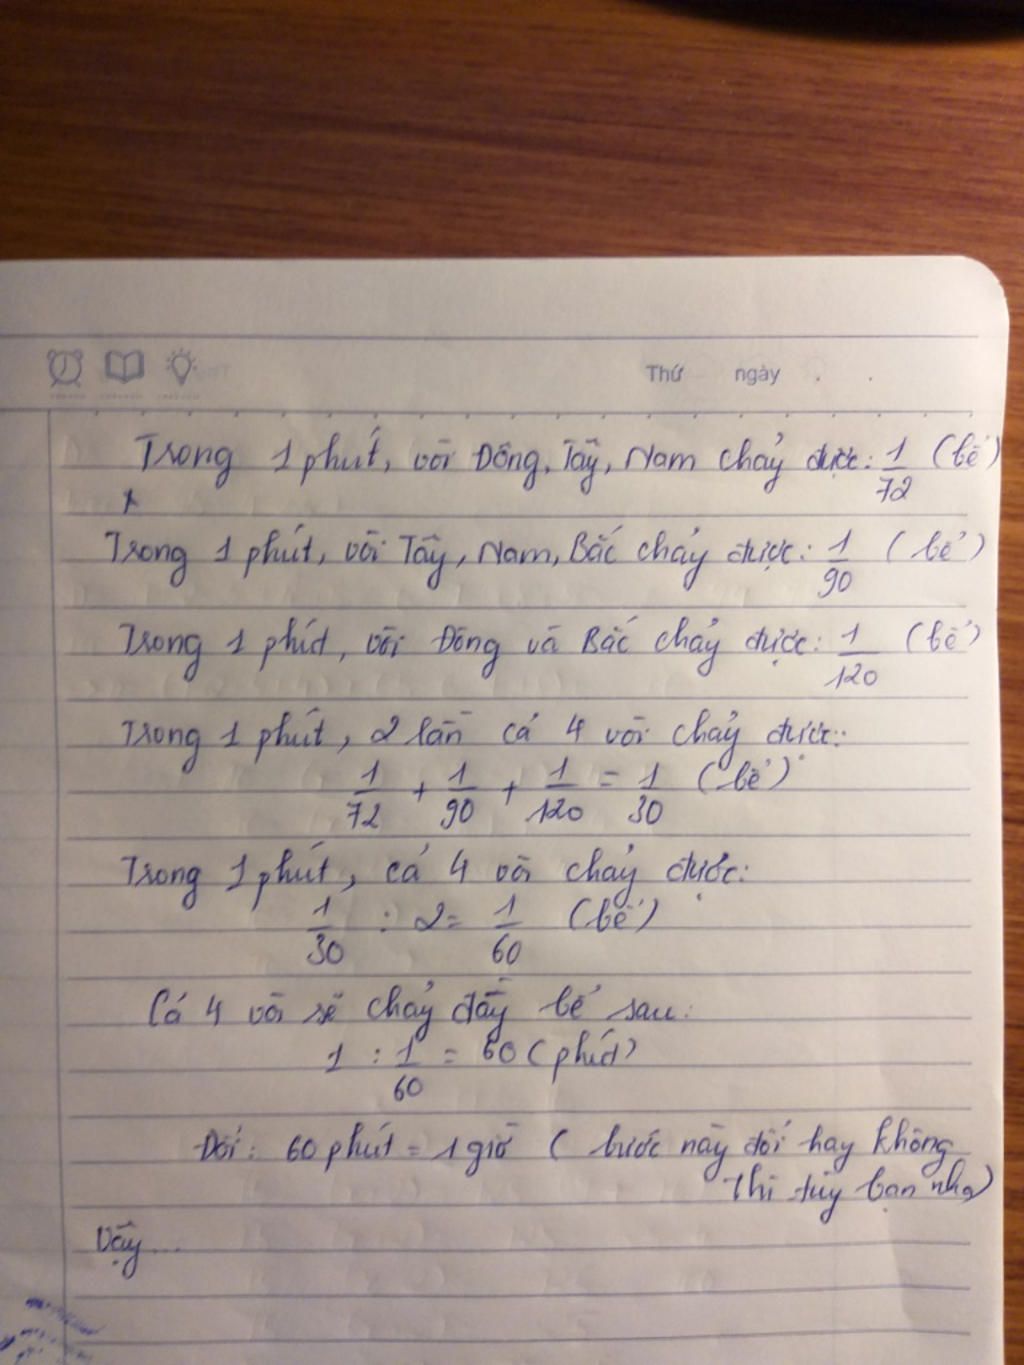 Thứ ngày . .
Trong 1 phút, vòi Đông, Tây, Nam chảy được: 1/72 (bể)
Trong 1 phút, vòi Tây, Nam, Bắc chảy được: 1/90 (bể)
Trong 1 phút, vòi Đông và Bắc chảy được: 1/120 (bể)
Trong 1 phút, 2 lần cả 4 vòi chảy được:
1/72 + 1/90 + 1/120 = 1/30 (bể)
Trong 1 phút, cả 4 vòi chảy được:
1/30 : 2 = 1/60 (bể)
Cả 4 vòi sẽ chảy đầy bể sau:
1 : 1/60 = 60 (phút)
Đổi: 60 phút = 1 giờ ( bước này đổi hay không
thì tùy bạn nha)
Vậy...